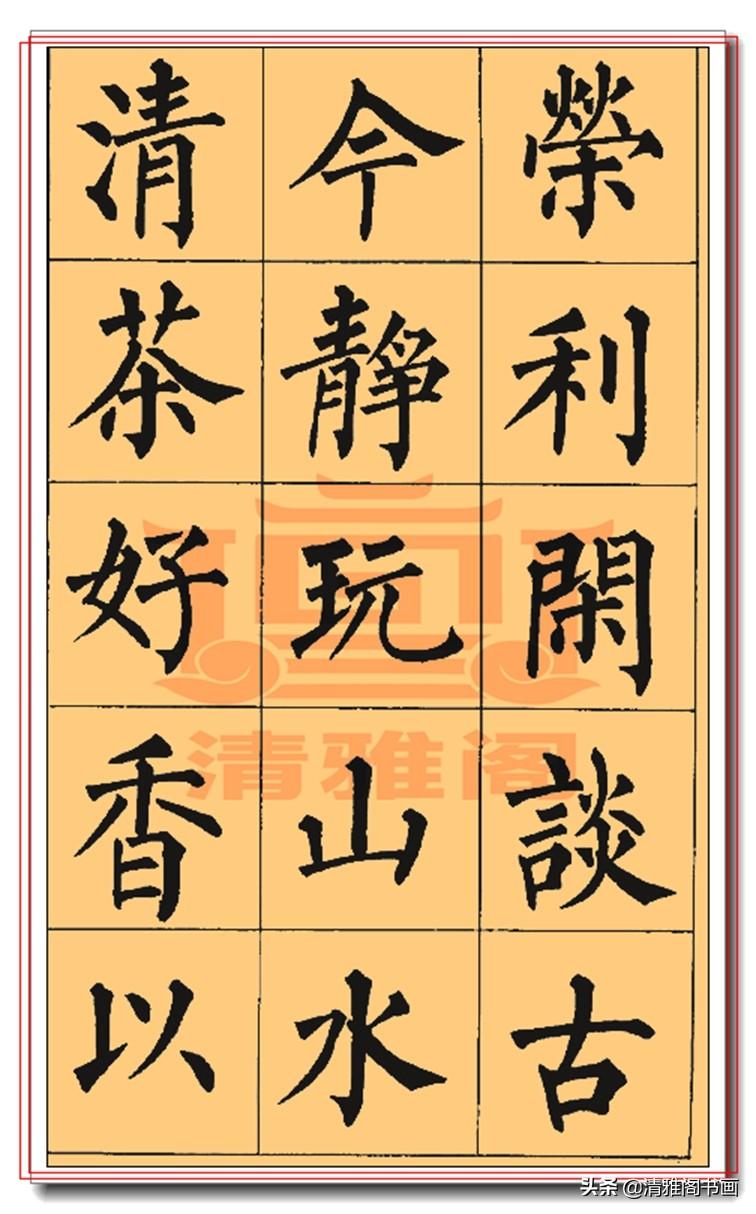 榮利閑談古
今静玩山水
清茶好香以
清雅阁
头条 @清雅阁书画